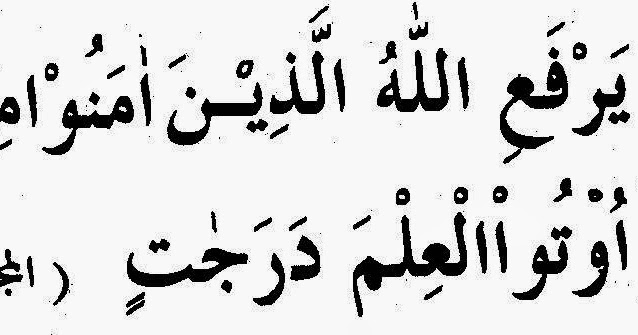 يَرْفَعِ اللّٰهُ الَّذِيْنَ اٰمَنُوْا
اُوْتُواْ الْعِلْمَ دَرَجٰتٍ